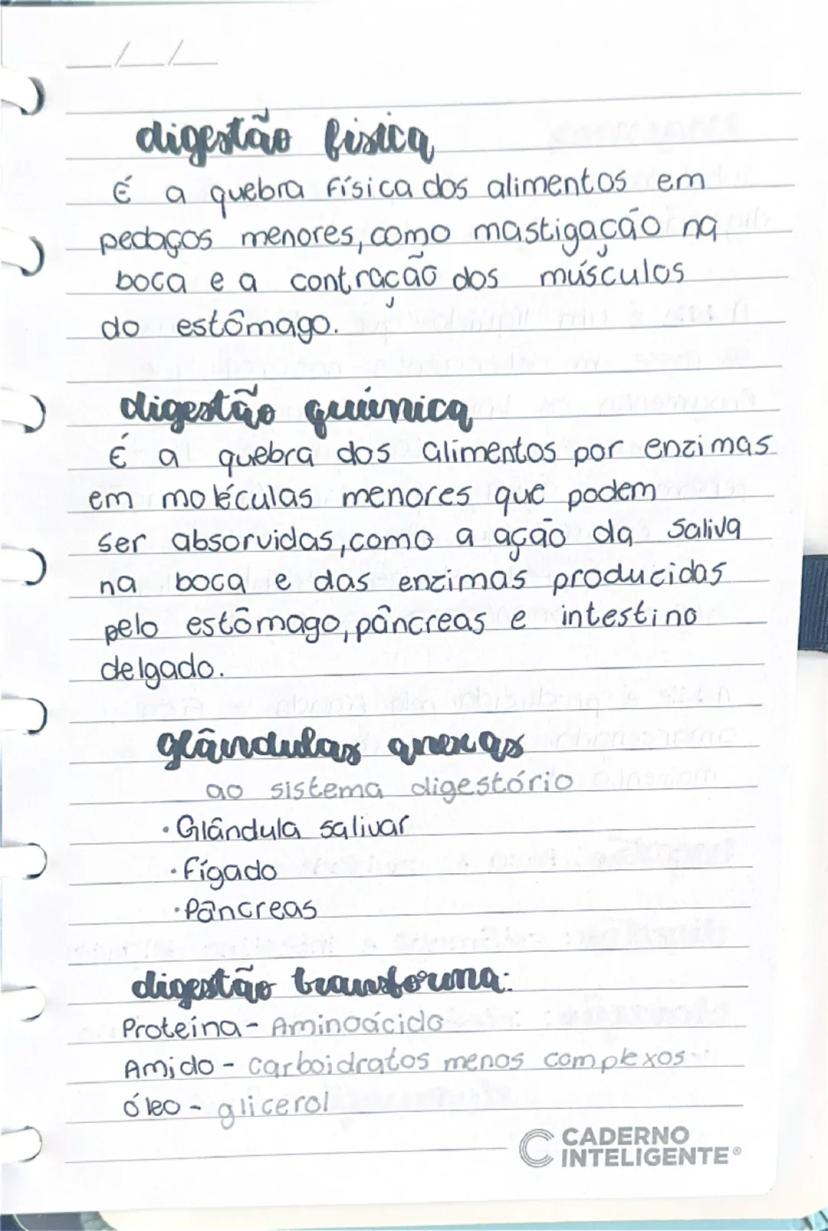 __/__/__
digestão física
É a quebra física dos alimentos em
pedaços menores, como mastigação na
boca e a contração dos músculos
do estômago.
digestão química
É a quebra dos alimentos por enzimas
em moléculas menores que podem
ser absorvidas, como a ação da saliva
na boca e das enzimas producidas
pelo estômago, pâncreas e intestino
delgado.
glândulas anexas
ao sistema digestório
• Glândula salivar
• Fígado
• Pâncreas
digestão transforma:
Proteína - Aminoácido
Amido - carboidratos menos complexos
óleo - glicerol
CADERNO
INTELIGENTE®